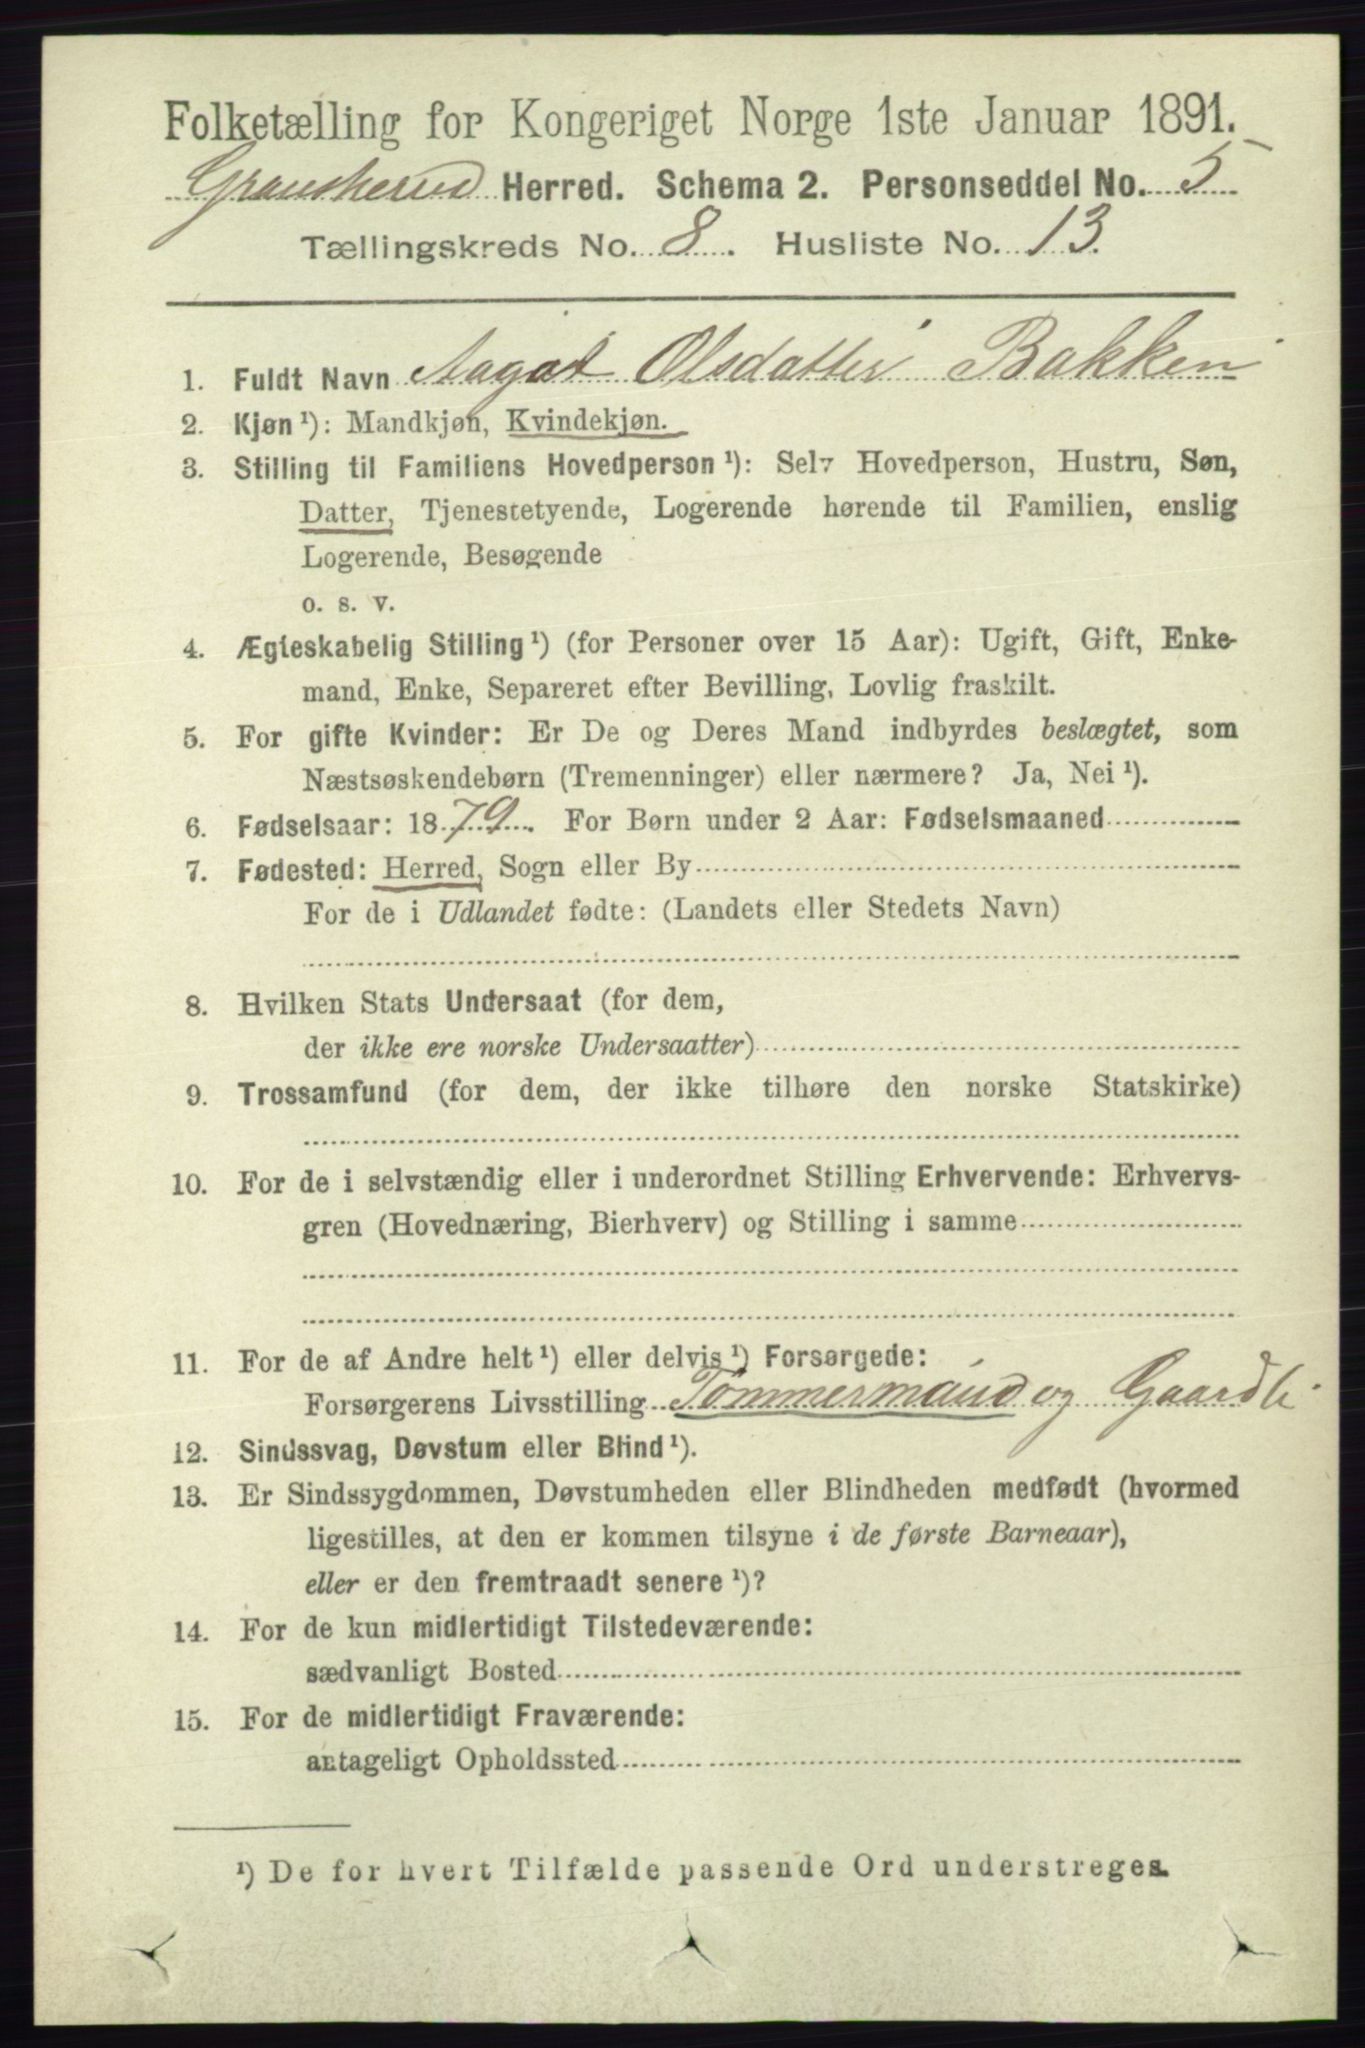 Folketælling for Kongeriget Norge 1ste Januar 1891.
Gransherud Herred. Schema 2. Personseddel No. 5
Tællingskreds No. 8. Husliste No. 13.
1. Fuldt Navn Aagot Olsdatter Bakken
2. Kjøn¹): Mandkjøn, Kvindekjøn.
3. Stilling til Familiens Hovedperson¹): Selv Hovedperson, Hustru, Søn,
Datter, Tjenestetyende, Logerende hørende til Familien, enslig
Logerende, Besøgende
o. s. v.
4. Ægteskabelig Stilling¹) (for Personer over 15 Aar): Ugift, Gift, Enke-
mand, Enke, Separeret efter Bevilling, Lovlig fraskilt.
5. For gifte Kvinder: Er De og Deres Mand indbyrdes beslægtet, som
Næstsøskendebørn (Tremenninger) eller nærmere? Ja, Nei¹).
6. Fødselsaar: 1879. For Børn under 2 Aar: Fødselsmaaned
7. Fødested: Herred, Sogn eller By
For de i Udlandet fødte: (Landets eller Stedets Navn)
8. Hvilken Stats Undersaat (for dem,
der ikke ere norske Undersaatter)
9. Trossamfund (for dem, der ikke tilhøre den norske Statskirke)
10. For de i selvstændig eller i underordnet Stilling Erhvervende: Erhvervs-
gren (Hovednæring, Bierhverv) og Stilling i samme
11. For de af Andre helt¹) eller delvis¹) Forsørgede:
Forsørgerens Livsstilling Tømmermand og Gaardb
12. Sindssvag, Døvstum eller Blind¹).
13. Er Sindssygdommen, Døvstumheden eller Blindheden medfødt (hvormed
ligestilles, at den er kommen tilsyne i de første Barneaar),
eller er den fremtraadt senere¹)?
14. For de kun midlertidigt Tilstedeværende:
sædvanligt Bosted
15. For de midlertidigt Fraværende:
antageligt Opholdssted
¹) De for hvert Tilfælde passende Ord understreges.